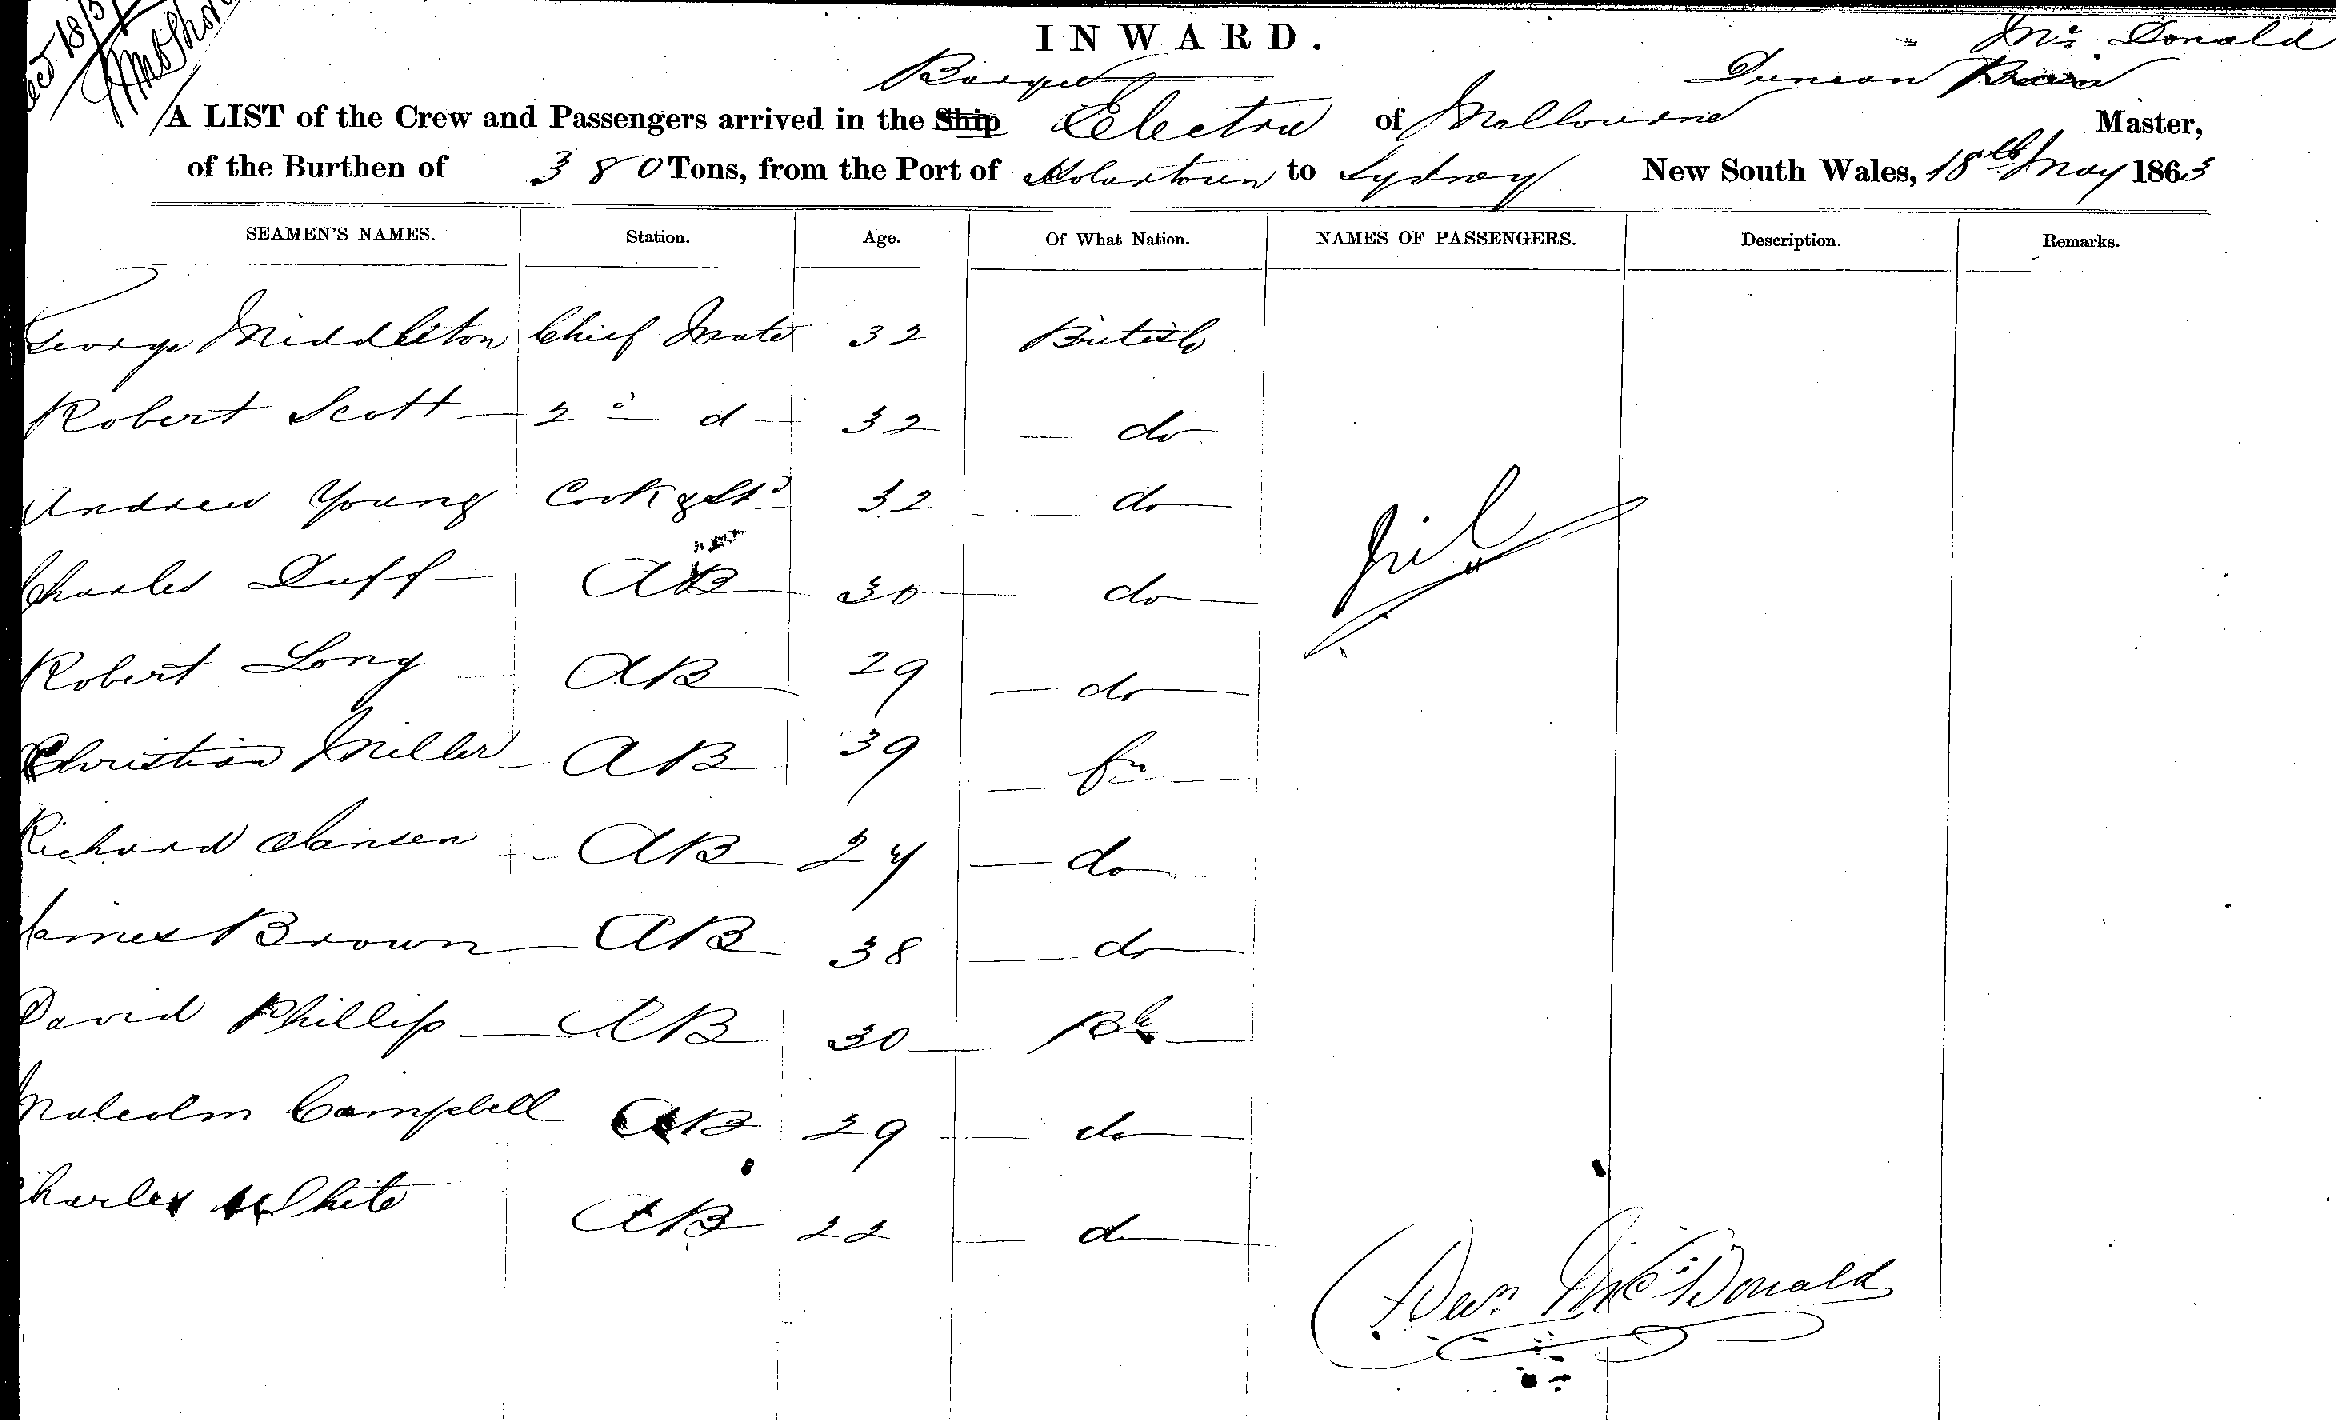 INWARD.
Mc. Donald
Barque Duncan
A LIST of the Crew and Passengers arrived in the Ship Electra of Mellourne Master,
of the Burthen of 380 Tons, from the Port of Hobartown to Sydney New South Wales, 18th May 1863
SEAMEN'S NAMES. Station. Age. Of What Nation. NAMES OF PASSENGERS. Description. Remarks.
George Middleton Chief Mate 32 British
Robert Scott 2d d 32 do
Andrew Young Cook & Std 32 do
Nil
Charles Duff AB 30 do
Robert Long AB 29 do
Christian Miller AB 39 fn
Richard Jansen AB 24 do
James Brown AB 38 do
David Phillip AB 30 Bh
Malcolm Campbell AB 29 do
Charles White AB 22 d
Dun McDonald